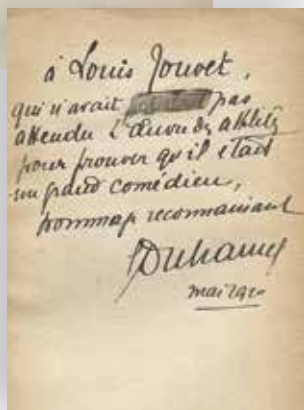 à Louis Jouvet,
qui n'avait pas
attendu L'Œuvre des athlètes
pour prouver qu'il était
un grand comédien,
hommage reconnaissant
GDuhamel
mai 1920